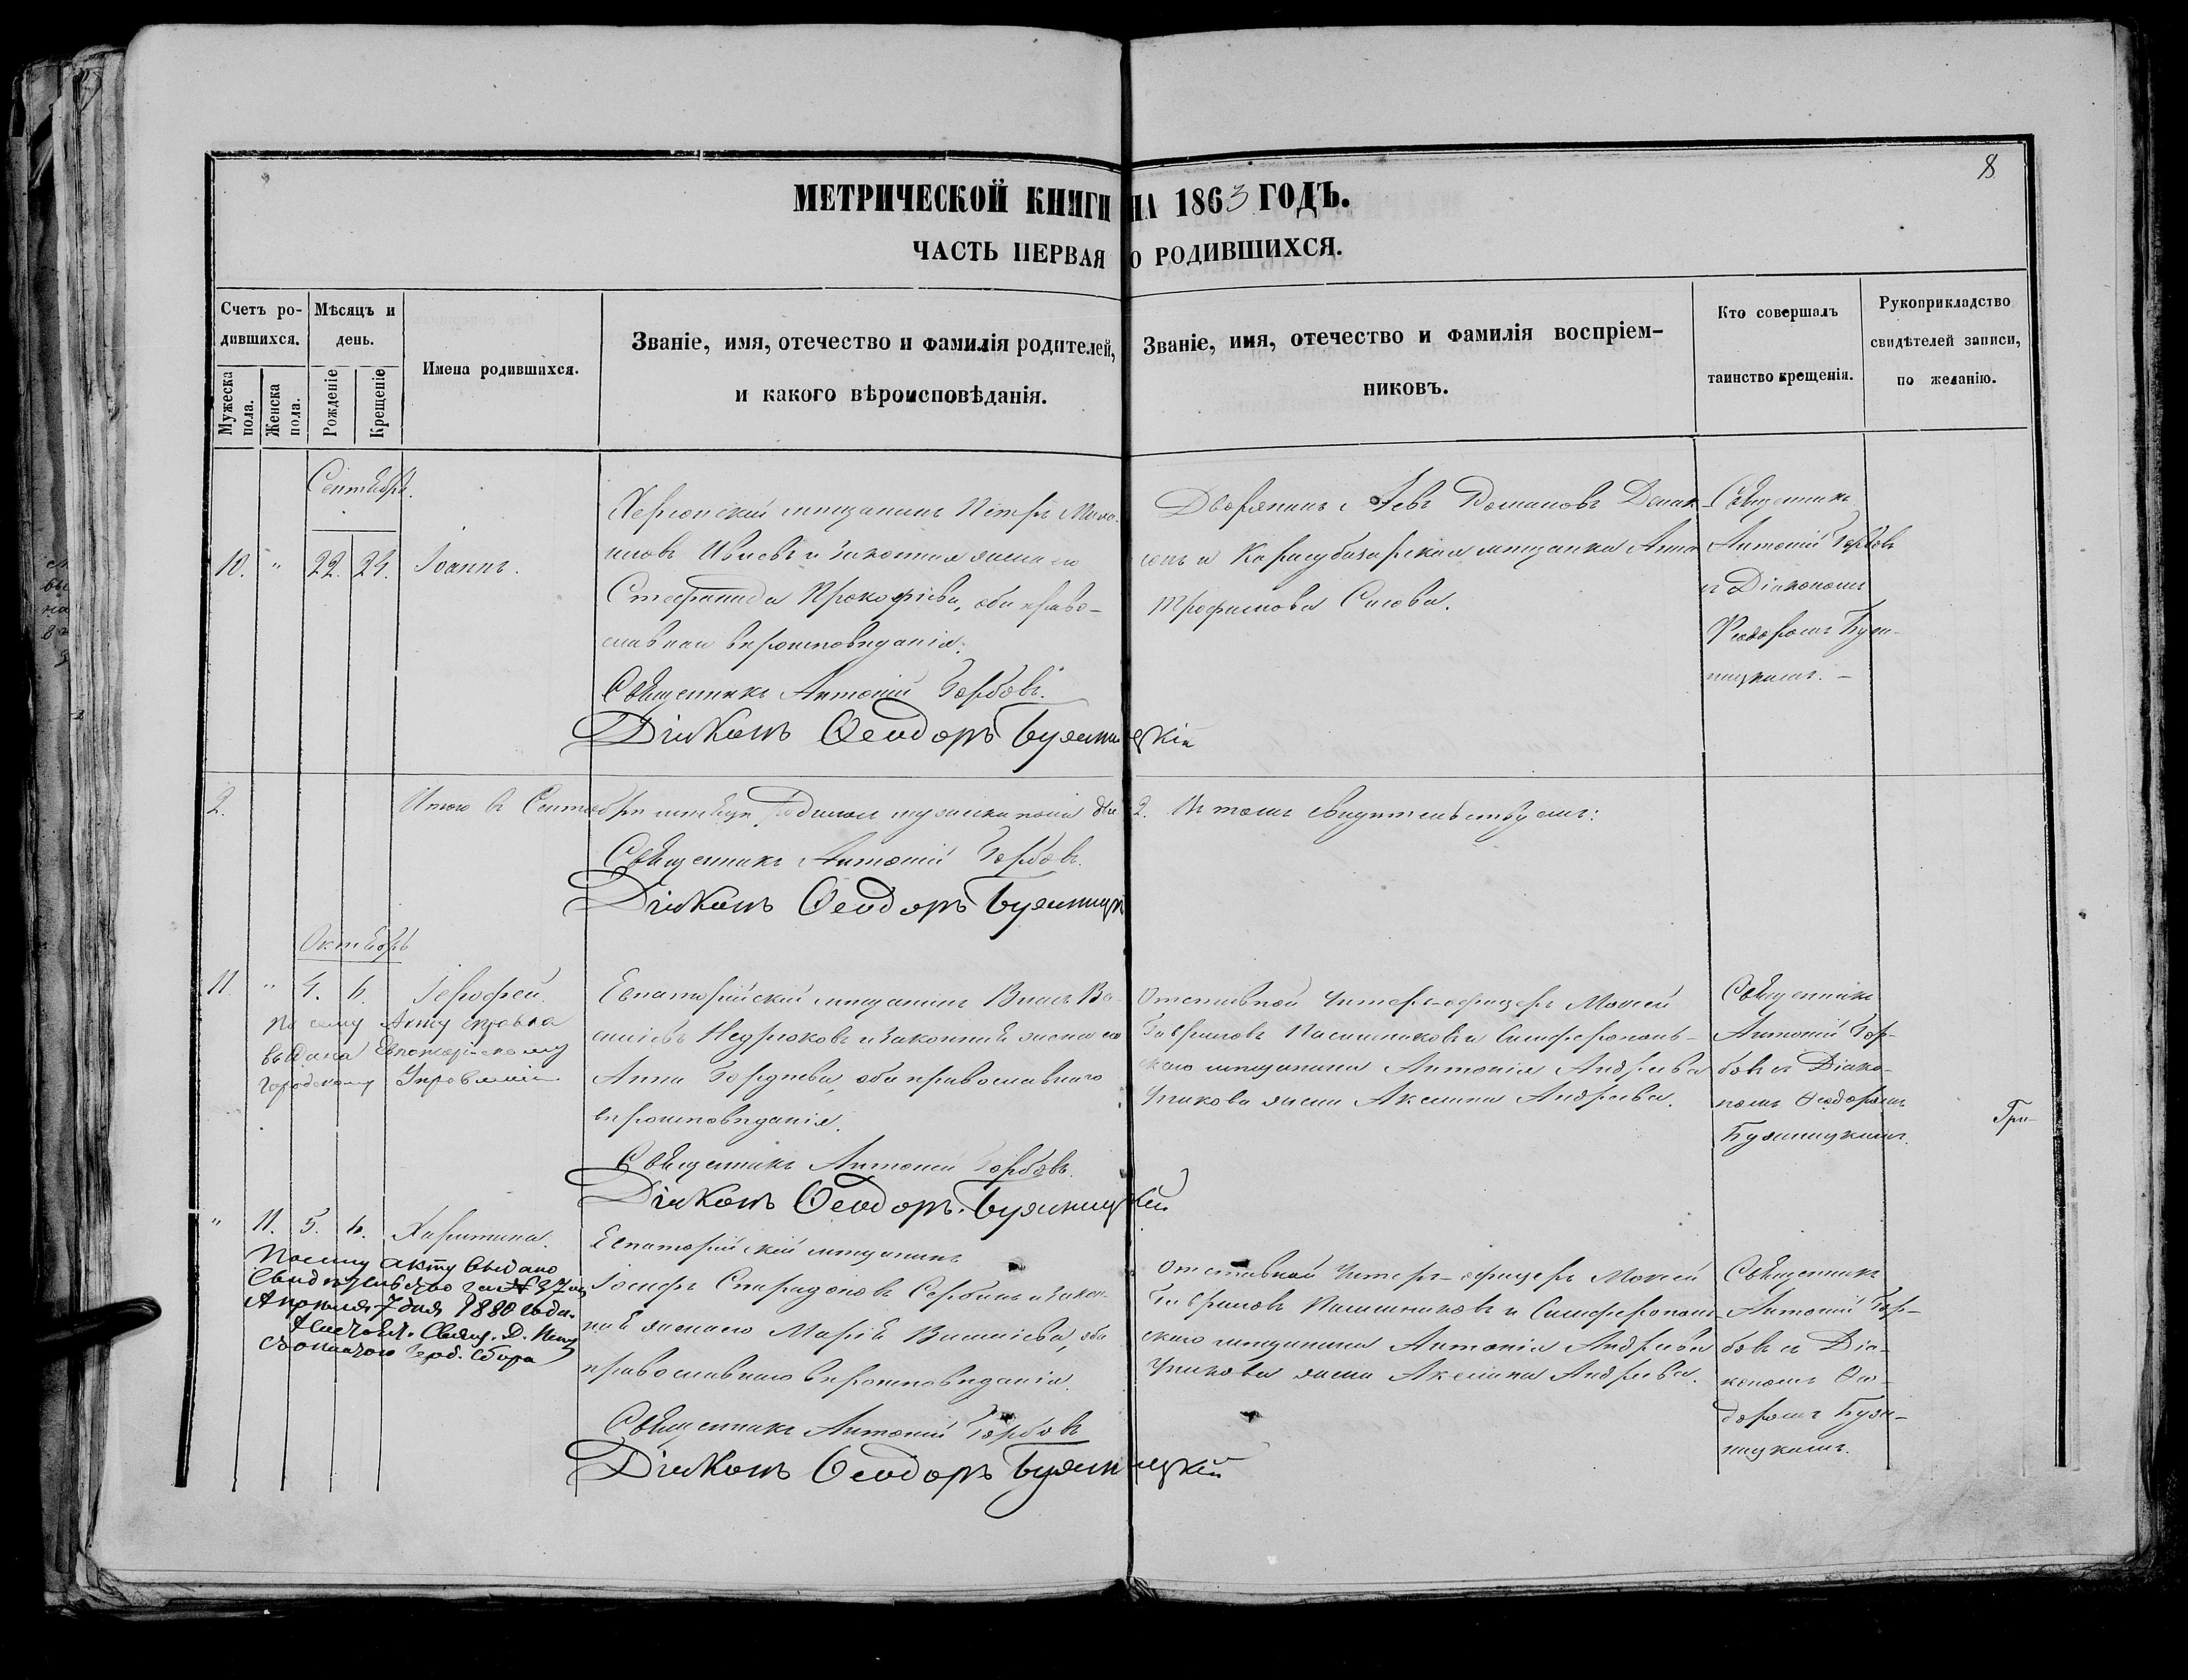 8
МЕТРИЧЕСКОЙ КНИГИ НА 1863 ГОДЪ.
ЧАСТЬ ПЕРВАЯ О РОДИВШИХСЯ.
Счетъ ро-
дившихся.
Мужеска
пола.
Женска
пола.
Мѣсяцъ и
день.
Рожденіе
Крещеніе
Имена родившихся.
Званіе, имя, отечество и фамилія родителей,
и какого вѣроисповѣданія.
Званіе, имя, отечество и фамилія воспріем-
никовъ.
Кто совершалъ
таинство крещенія.
Рукоприкладство
свидѣтелей записи,
по желанію.
Сентябрь.
10. " 22. 24. Іоаннъ.
Херсонскій мѣщанинъ Петръ
и законная жена его
Стефанида Прокофіева, оба право-
славнаго вѣроисповѣданія.
Священникъ Антоній Горбовъ.
Діаконъ Ѳеодоръ Бужиницкій
Дворянинъ Левъ Романовъ
и Карасубазарская мѣщанка Анна
Трофимова
Священникъ
Антоній Горбовъ
съ Діакономъ
Ѳеодоромъ Бужи-
ницкимъ.
2. Итого въ Сентябрѣ мѣсяцѣ родилось мужеска пола два 2. Въ томъ свидѣтельствуемъ:
Священникъ Антоній Горбовъ.
Діаконъ Ѳеодоръ Бужиницкій
Октябрь
11. " 4. 6. Іерофей.
По сему Акту справка
выдана Евпаторійскому
Городскому Управленію
Евпаторійскій мѣщанинъ Власъ Ва-
сильевъ Недрюковъ и законная жена его
Анна Гордѣева, оба православнаго
вѣроисповѣданія.
Священникъ Антоній Горбовъ.
Діаконъ Ѳеодоръ Бужиницкій
Отставной Унтеръ-офицеръ Моисей
Гавриловъ и Симферополь-
скаго мѣщанина Антонія Андреева
жена Акелина Андреева.
Священникъ
Антоній Гор-
бовъ съ Діако-
номъ Ѳеодоромъ
Бужиницкимъ.
" 11. 5. 6. Харитина.
По сему акту выдано
Свидѣтельство за № 37
Апрѣля 7 дня 1880 года.
Евпаторійскій мѣщанинъ
Іосифъ Спиридоновъ Сербинъ и закон-
ная жена его Марія Васильева, оба
православнаго вѣроисповѣданія.
Священникъ Антоній Горбовъ
Діаконъ Ѳеодоръ Бужиницкій
Отставной Унтеръ-офицеръ Моисей
Гавриловъ и Симферополь-
скаго мѣщанина Антонія Андреева
жена Акелина Андреева.
Священникъ
Антоній Гор-
бовъ съ Діа-
кономъ Ѳео-
доромъ Бужи-
ницкимъ.